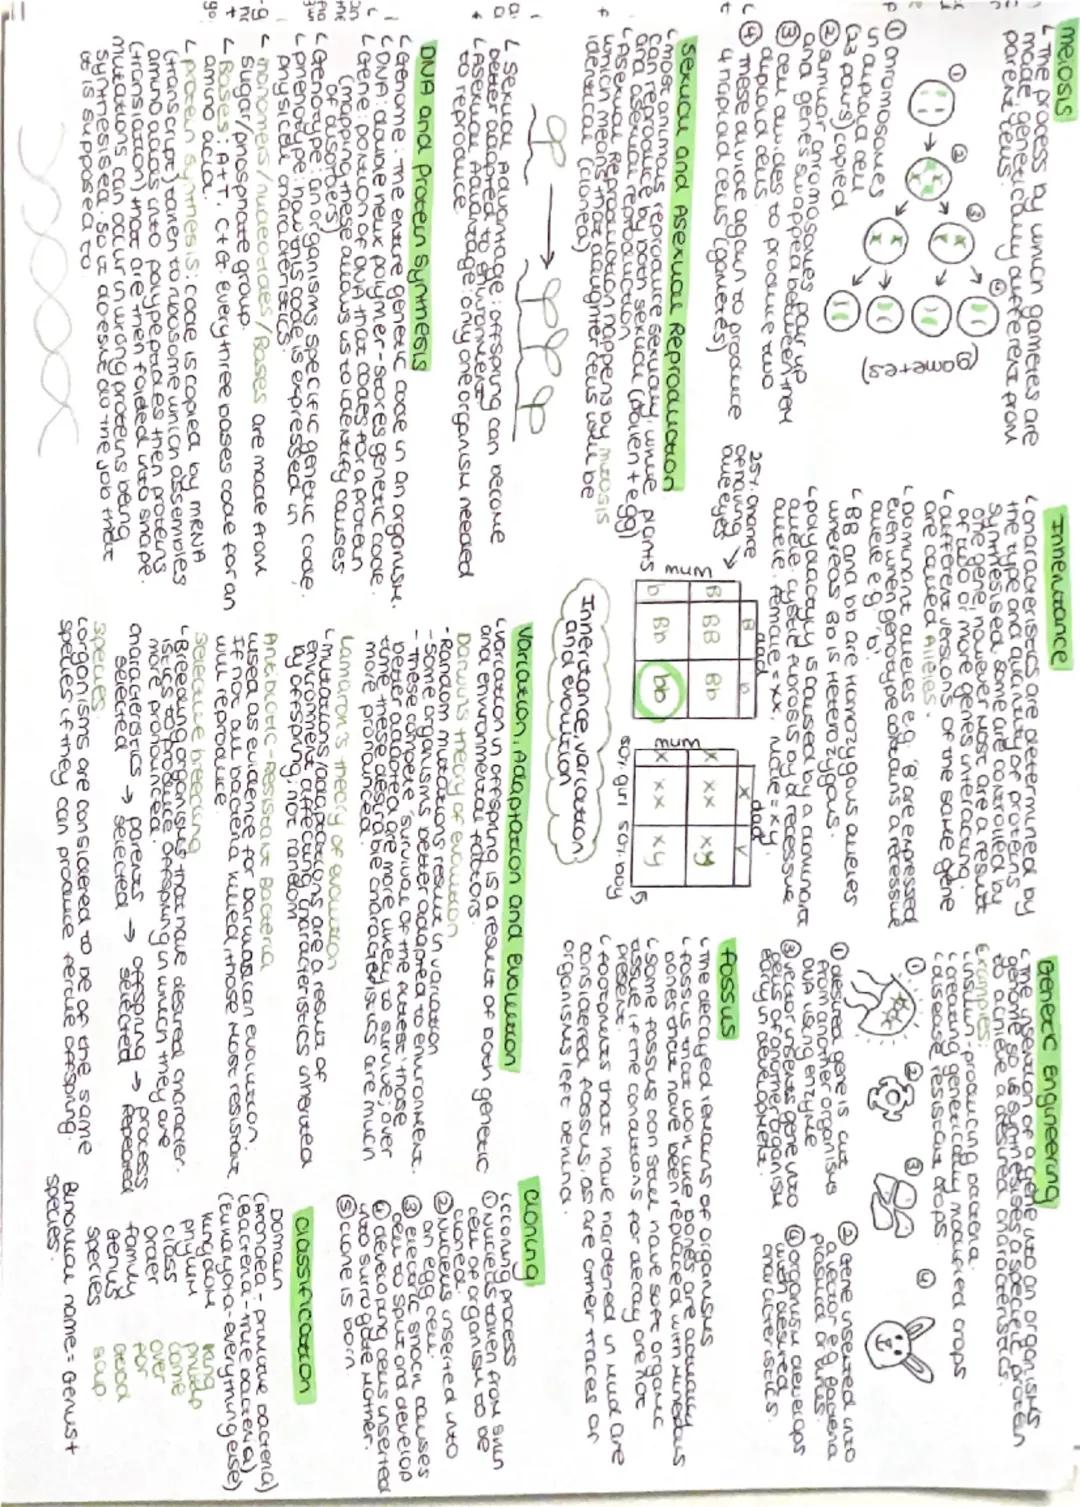 meiosis
↳ The process by which gametes are
made, genetically different from
parent cells.
①
②
③
④
(gametes)
① chromosomes
in a diploid cell
(23 pairs) copied
② similar chromosomes pair up
and genes swapped between them
③ cell divides to produce two
diploid cells
④ These divide again to produce
4 haploid cells (gametes)
Sexual and Asexual Reproduction
↳ most animals reproduce sexually, while plants
can reproduce by both sexual (pollen + egg)
and asexual reproduction
↳ Asexual Reproduction happens by mitosis
which means that daughter cells will be
identical (cloned)
↳ Sexual Advantage: offspring can become
better adapted to environment
↳ Asexual Advantage: only one organism needed
to reproduce.
DNA and Protein Synthesis
↳ Genome: The entire genetic code in an organism.
↳ DNA: double helix polymer - stores genetic code.
↳ Gene: portion of DNA that codes for a protein
(mapping these allows us to identify causes
of disorders)
↳ Genotype: an organisms specific genetic code.
↳ phenotype: how this code is expressed in
physical characteristics.
↳ monomers/nucleotides/Bases are made from
sugar/phosphate group.
↳ Bases: A+T, C+G. Every three bases code for an
amino acid.
↳ protein synthesis: code is copied by mRNA
(transcript) taken to ribosome which assembles
amino acids into polypeptides then proteins
(translation) that are then folded into shape.
mutations can occur in wrong proteins being
synthesised, so it doesn't do the job that
it is supposed to.
Inheritance
↳ characteristics are determined by
the type and quantity of proteins
synthesised, some are controlled by
one gene, however most are a result
of two or more genes interacting.
↳ different versions of the same gene
are called Alleles.
↳ dominant alleles e.g. 'B' are expressed
even when genotype contains a recessive
allele e.g. 'b'
↳ BB and bb are Homozygous alleles
whereas Bb is Heterozygous.
↳ polydactyly is caused by a dominant
allele, cystic fibrosis by a recessive
allele. female = xx, male = xy.
25% chance
of having
blue eyes
dad
B b
mum
B BB Bb
b Bb bb
dad
x y
mum
x xx xy
x xx xy
50% girl 50% boy
Inheritance, variation
and evolution
Variation, Adaptation and Evolution
↳ variation in offspring is a result of both genetic
and environmental factors.
Darwin's theory of evolution
- Random mutations result in variation
- Some organisms better adapted to environment.
- these compete 'survival of the fittest' those
better adapted are more likely to survive, over
time these desirable characteristics are much
more pronounced.
Lamarck's theory of evolution
↳ mutations/adaptations are a result of
environment affecting characteristics inherited
by offspring, not random
Antibiotic-Resistant Bacteria
used as evidence for Darwinian evolution.
If not all bacteria killed, those most resistant
will reproduce
Selective breeding
↳ Breeding organisms that have desired character-
istics to produce offspring in which they are
more pronounced.
characteristics → parents → offspring → process
selected selected selected repeated
Species
↳ organisms are considered to be of the same
species if they can produce fertile offspring.
Genetic Engineering
↳ The insertion of a gene into an organisms
genome so is synthesises a specific protein
to achieve a desired characteristic.
Examples:
↳ insulin-producing bacteria.
↳ creating genetically modified crops
↳ disease resistant crops.
①
②
③
④
① desired gene is cut
from another organisms
DNA using enzyme
② Gene inserted into
a vector e.g. bacteria
plasmid or virus.
③ vector inserts gene into
cells of another organism
early in development.
④ organism develops
with desired
characteristics.
fossils
↳ The decayed remains of organisms
↳ fossils that look like bones are actually
bones that have been replaced with minerals
↳ some fossils can still have soft organic
tissue if the conditions for decay are not
present.
↳ footprints that have hardened in mud are
considered fossils, as are other traces of
organisms left behind.
Cloning
↳ cloning process
① nucleus taken from skin
cell of organism to be
cloned.
② nucleus inserted into
an egg cell.
③ electric shock causes
cell to split and develop
④ developing cells inserted
into surrogate mother.
⑤ clone is born
Classification
Domain
(Archaea - primitive bacteria)
(Bacteria - true bacteria)
(Eukaryota - everything else)
Kingdom King
phylum philip
class came
order over
family for
genus good
species soup
Binomial name = Genus +
species.